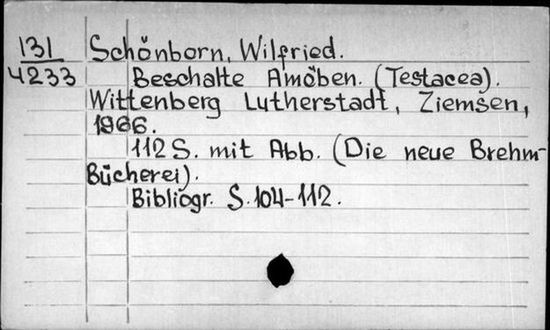 131 Schönborn, Wilfried.
4233 Beschalte Amöben. (Testacea).
Wittenberg Lutherstadt, Ziemsen,
1966.
112 S. mit Abb. (Die neue Brehm-
Bücherei).
Bibliogr. S. 104-112.